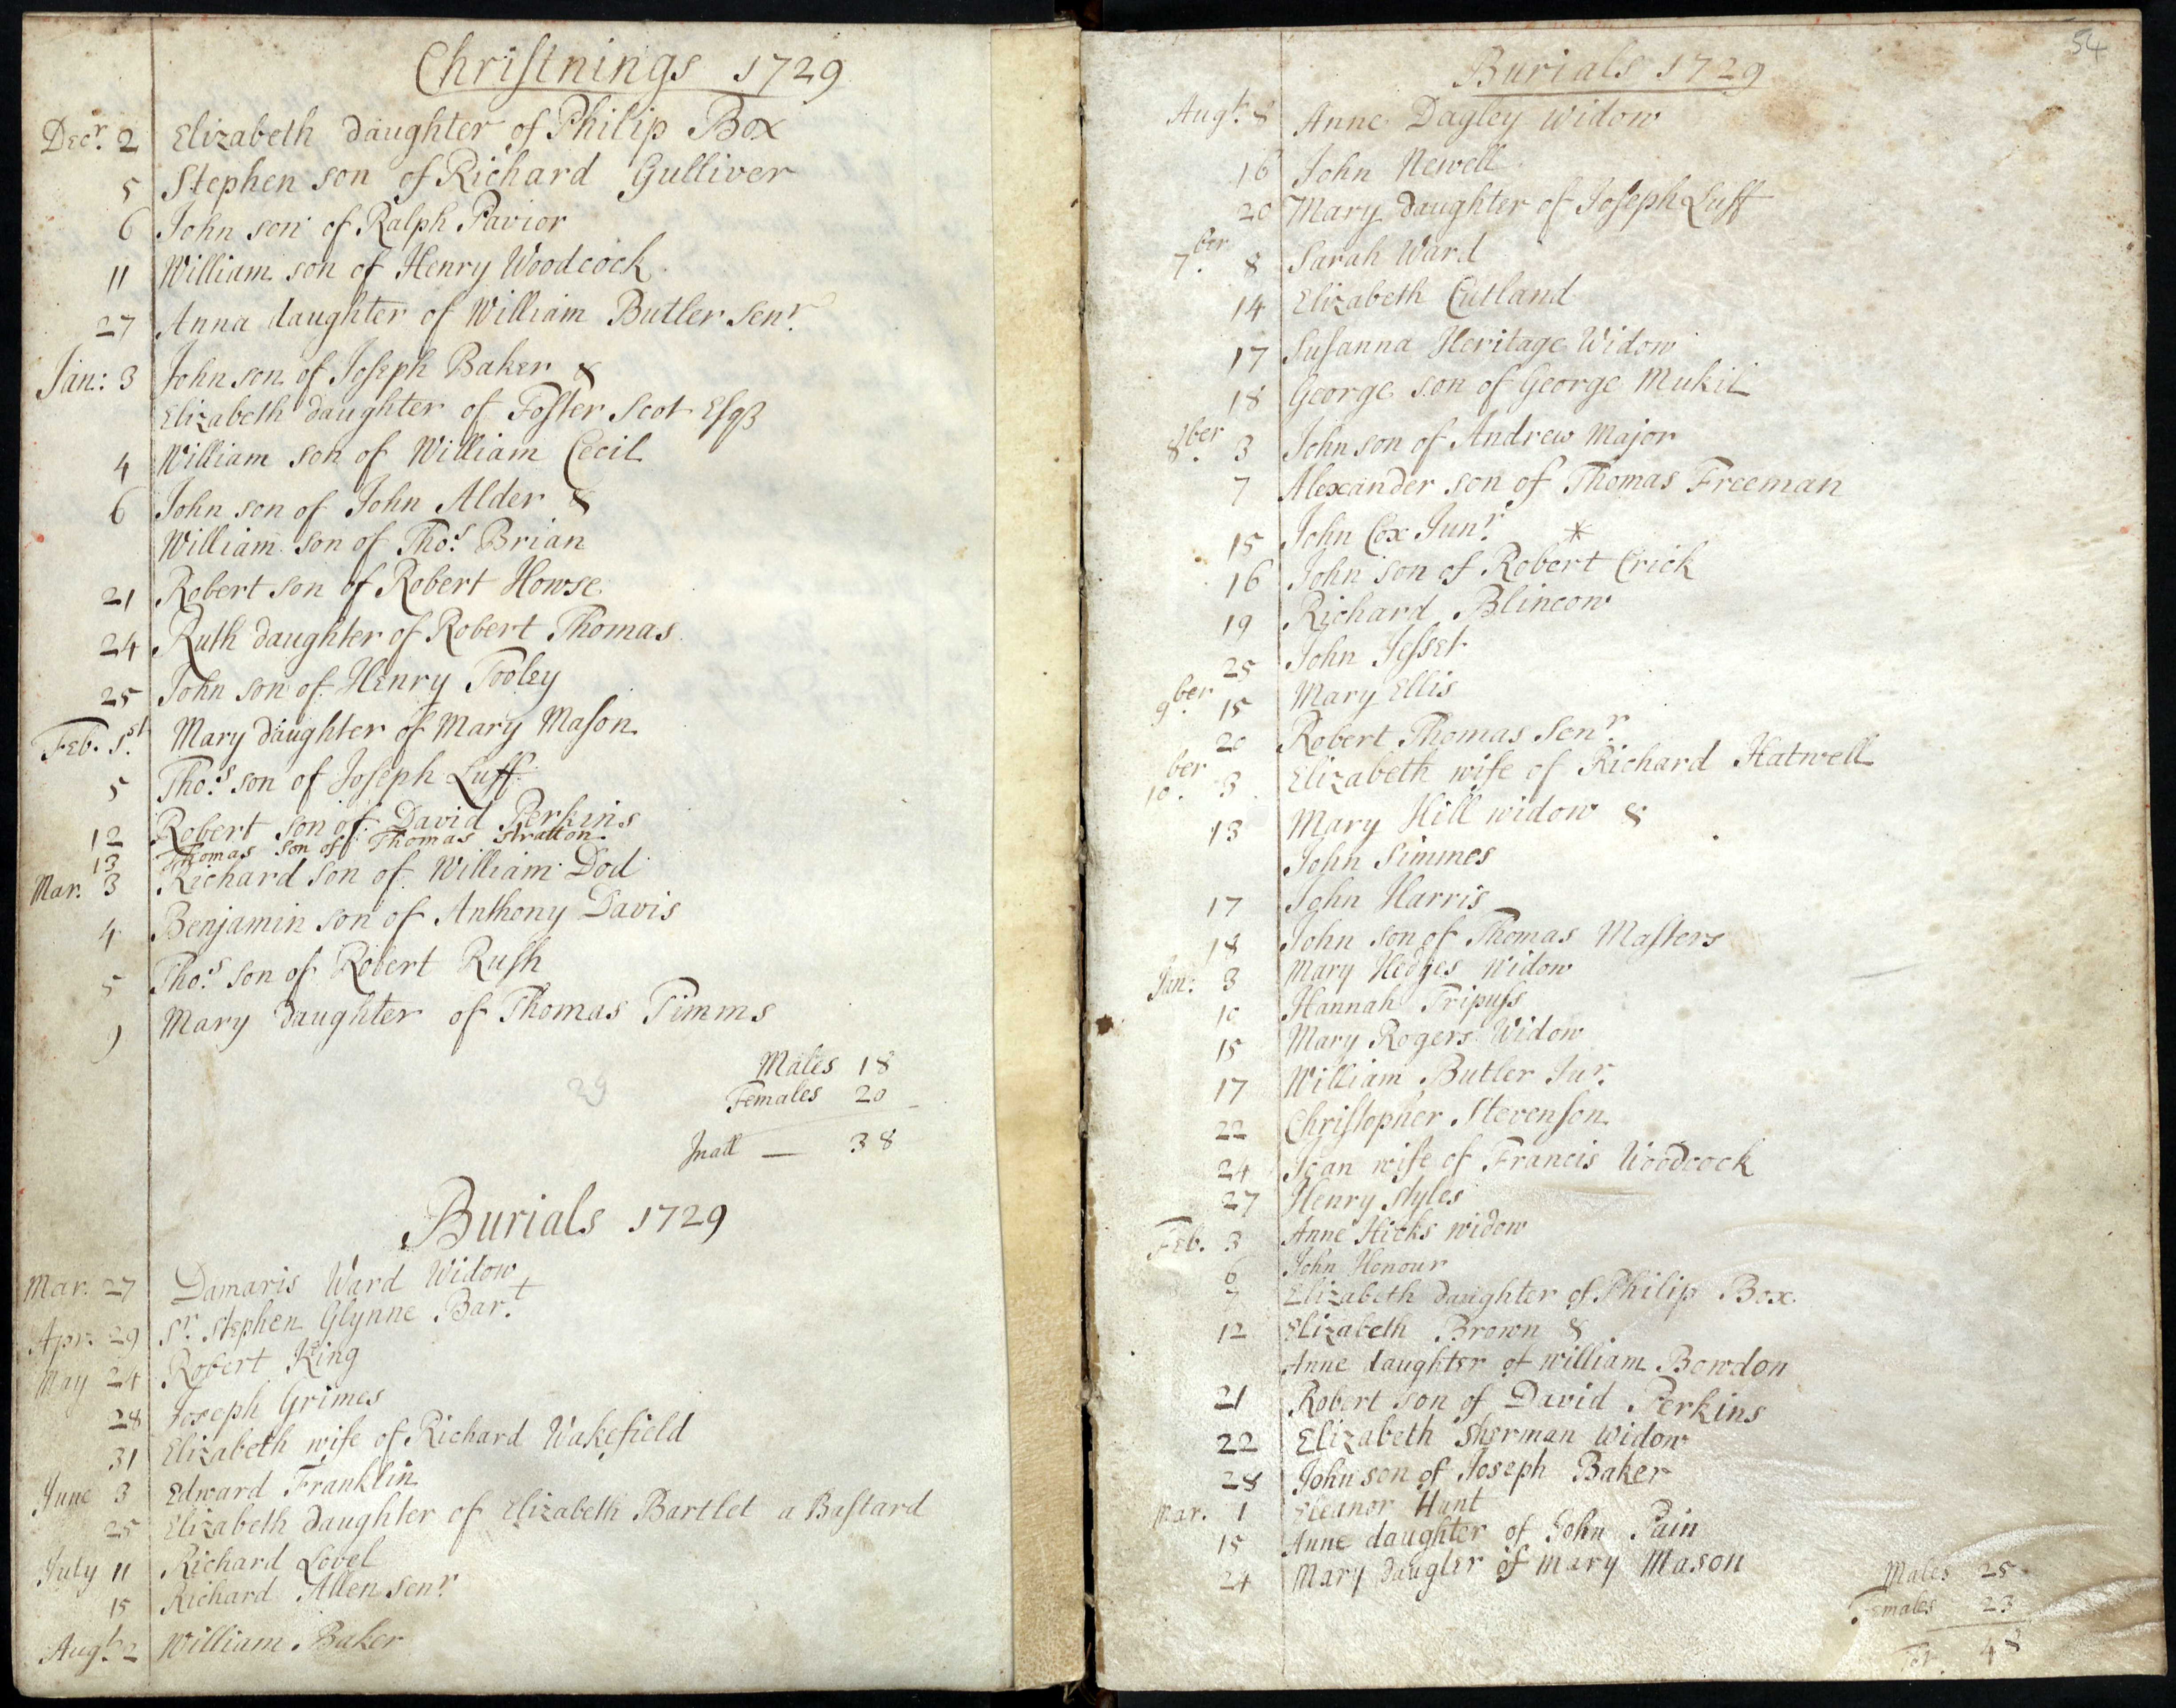 Christnings 1729
Decr. 2 Elizabeth daughter of Philip Box
5 Stephen son of Richard Gulliver
6 John son of Ralph Pavior
11 William son of Henry Woodcock
27 Anna daughter of William Butler Senr.
Jan: 3 John son of Joseph Baker &
Elizabeth daughter of Foster Scot Esqr
4 William son of William Cecil
6 John son of John Alder &
William son of Thos. Brian
21 Robert son of Robert Howse
24 Ruth daughter of Robert Thomas
25 John son of Henry Tooley
Feb. 1st. Mary daughter of Mary Mason
5 Thos. son of Joseph Luff
12 Robert son of David Perkins
13 Thomas son of Thomas Stratton
Mar. 3 Richard son of William Dod
4 Benjamin son of Anthony Davis
5 Thos. son of Robert Rush
9 Mary daughter of Thomas Timms
Males 18
29
Females 20
Inall — 38
Burials 1729
Mar. 27 Damaris Ward Widow
Apr. 29 Sr. Stephen Glynne Bart.
May 24 Robert King
28 Joseph Grimes
31 Elizabeth wife of Richard Wakefield
June 3 Edward Franklin
25 Elizabeth daughter of Elizabeth Bartlet a Bastard
July 11 Richard Lovel
15 Richard Allen Senr.
Augt. 2 William Baker
54
Burials 1729
Augt. 8 Anne Dagley widow
16 John Newell
20 Mary daughter of Joseph Luff
7ber. 8 Sarah Ward
14 Elizabeth Cutland
17 Susanna Heritage Widow
18 George son of George Mukit
8ber. 3 John son of Andrew Major
7 Alexander son of Thomas Freeman
15 John Cox Junr. *
16 John son of Robert Crick
19 Richard Blincow
25 John Jesset
9ber. 15 Mary Ellis
20 Robert Thomas Senr.
10ber. 3 Elizabeth wife of Richard Hatwell
13 Mary Hill widow &
John Simmes
17 John Harris
18 John son of Thomas Masters
Jan: 3 Mary Hedges Widow
10 Hannah Tripuss
15 Mary Rogers Widow
17 William Butler Jur.
22 Christopher Stevenson
24 Joan wife of Francis Woodcock
27 Henry Styles
Feb. 3 Anne Hicks widow
6 John Honour
7 Elizabeth daughter of Philip Box
12 Elizabeth Brown &
Anne daughter of William Bowdon
21 Robert son of David Perkins
22 Elizabeth Sherman Widow
28 John son of Joseph Baker
Mar. 1 Eleanor Hunt
15 Anne daughter of John Pain
24 Mary daugter of Mary Mason
Males 25
Females 23
48